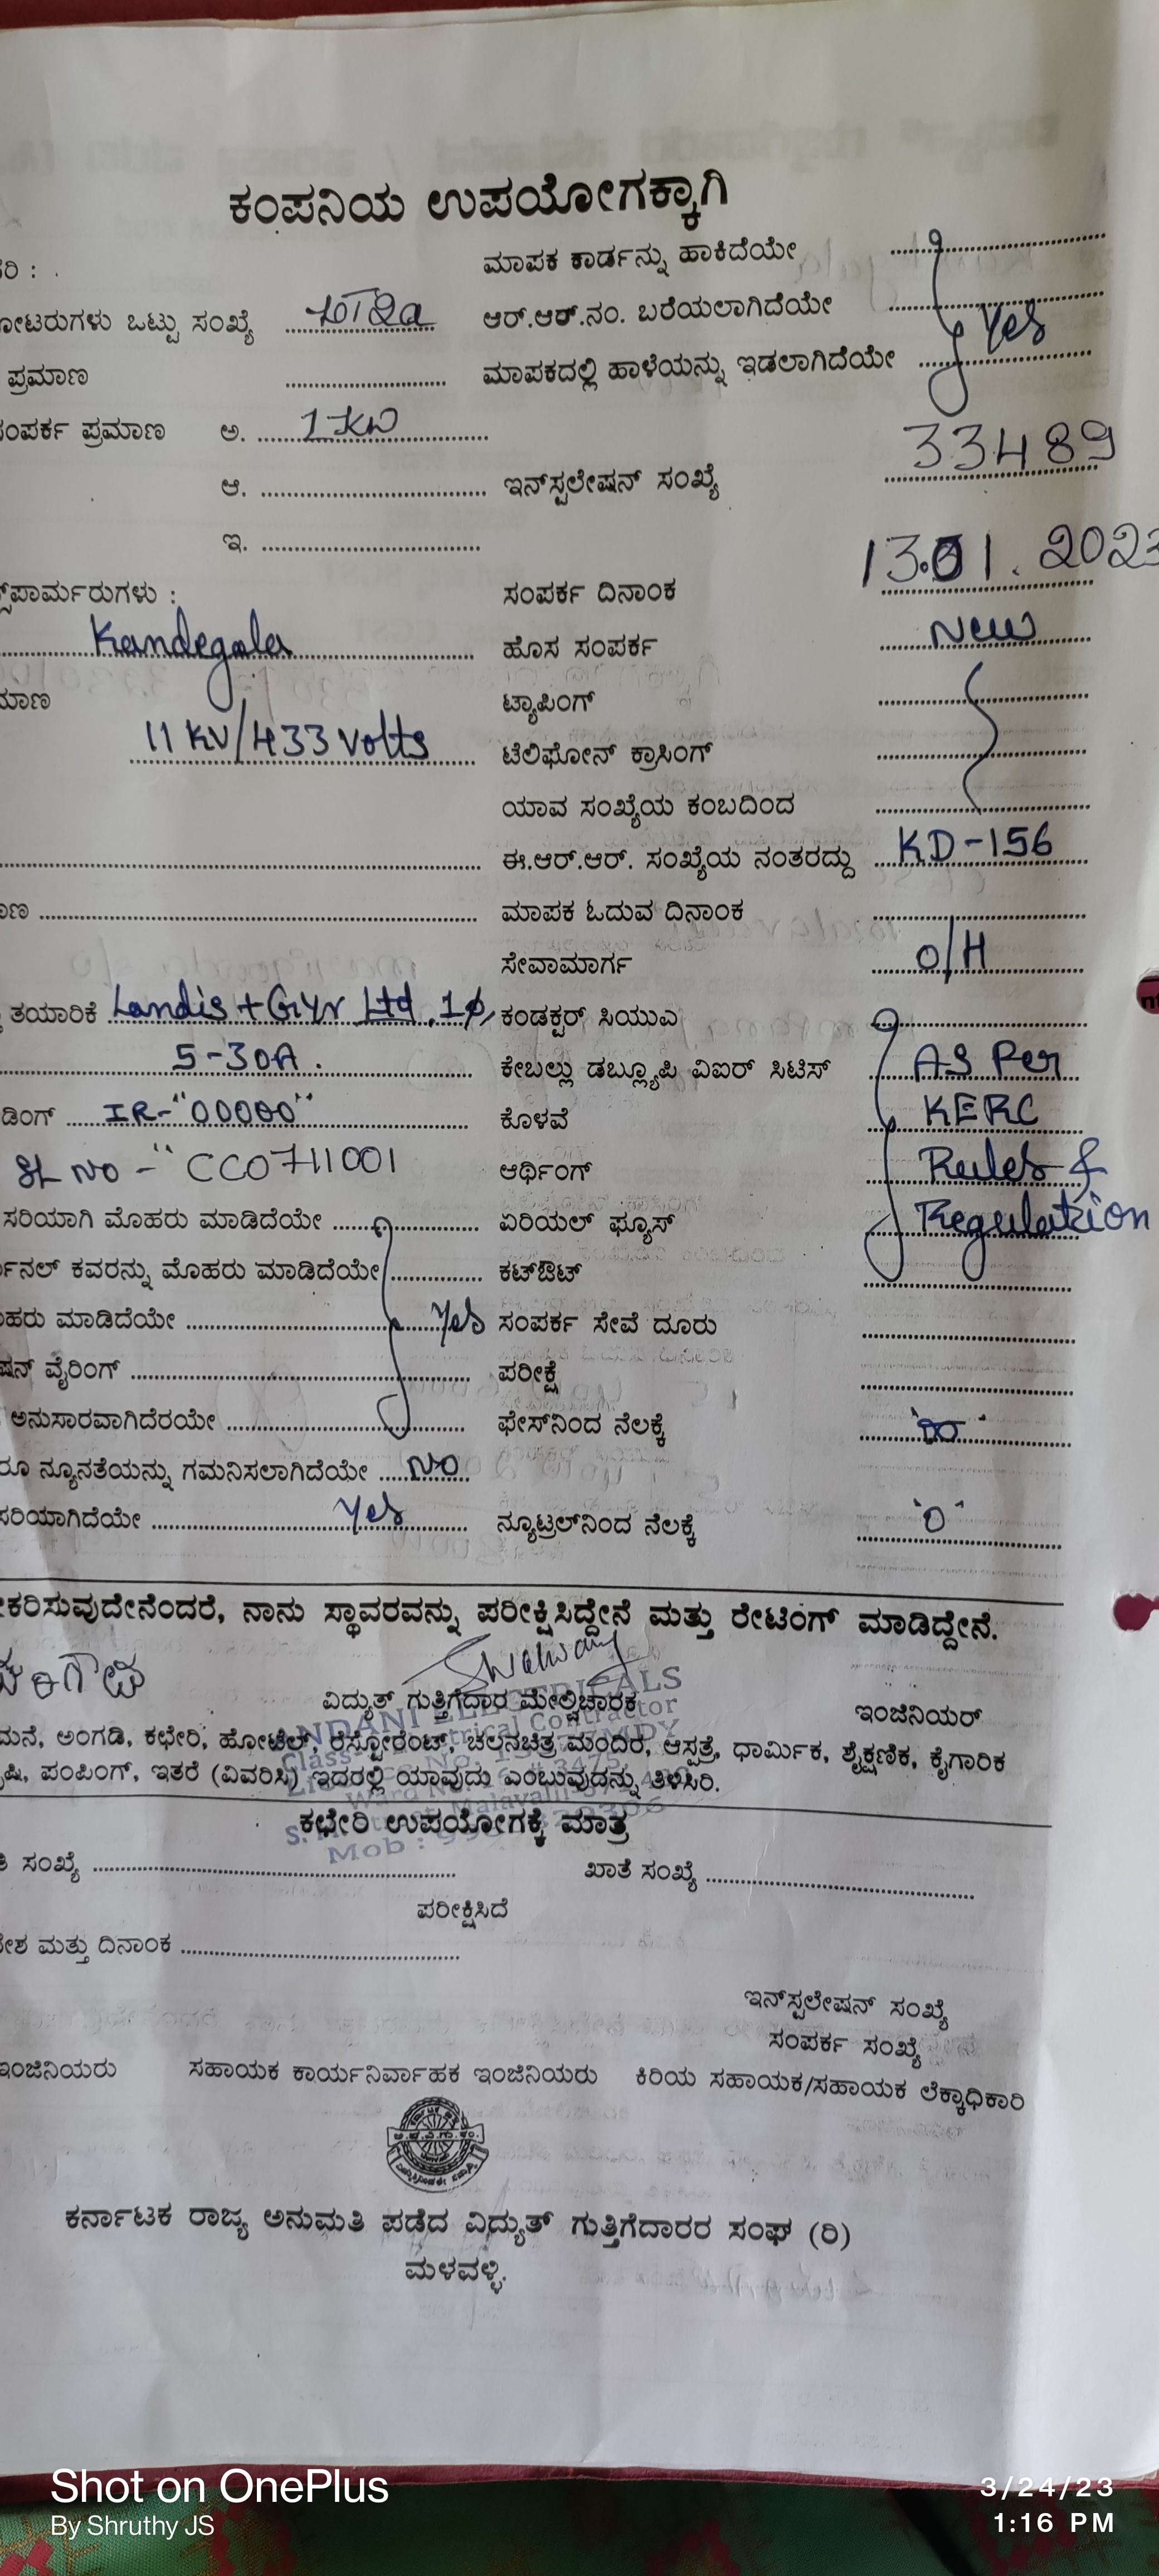 ಕಂಪನಿಯ ಉಪಯೋಗಕ್ಕಾಗಿ
ರಿ : ಮಾಪಕ ಕಾರ್ಡನ್ನು ಹಾಕಿದೆಯೇ
ೋಟರುಗಳು ಒಟ್ಟು ಸಂಖ್ಯೆ ಆರ್.ಆರ್.ನಂ. ಬರೆಯಲಾಗಿದೆಯೇ Yes
ಪ್ರಮಾಣ ಮಾಪಕದಲ್ಲಿ ಹಾಳೆಯನ್ನು ಇಡಲಾಗಿದೆಯೇ
ಸಂಪರ್ಕ ಪ್ರಮಾಣ ಅ. 1 KW
ಆ. ಇನ್‌ಸ್ಟಲೇಷನ್ ಸಂಖ್ಯೆ 33489
ಇ.
ಸ್‌ಫಾರ್ಮರುಗಳು : ಸಂಪರ್ಕ ದಿನಾಂಕ 13.01.2023
Kandegala ಹೊಸ ಸಂಪರ್ಕ New
ಮಾಣ ಟ್ಯಾಪಿಂಗ್
11 KV/433 Volts ಟೆಲಿಫೋನ್ ಕ್ರಾಸಿಂಗ್
ಯಾವ ಸಂಖ್ಯೆಯ ಕಂಬದಿಂದ
ಈ.ಆರ್.ಆರ್. ಸಂಖ್ಯೆಯ ನಂತರದ್ದು KD-156
ಾಣ ಮಾಪಕ ಓದುವ ದಿನಾಂಕ
ಸೇವಾಮಾರ್ಗ O/H
ತಯಾರಿಕೆ Landis + Gyr Ltd, 1φ, ಕಂಡಕ್ಟರ್ ಸಿಯುಎ
5-30A. ಕೇಬಲ್ಲು ಡಬ್ಲ್ಯೂಪಿ ವಿಐರ್ ಸಿಟಿಸ್ AS Per
ಡಿಂಗ್ IR-"00000" ಕೊಳವೆ KERC
SL NO - "CC0711001 ಆರ್ಥಿಂಗ್ Rules &
ಸರಿಯಾಗಿ ಮೊಹರು ಮಾಡಿದೆಯೇ ಏರಿಯಲ್ ಫ್ಯೂಸ್ Regulation
ರ್ಮಿನಲ್ ಕವರನ್ನು ಮೊಹರು ಮಾಡಿದೆಯೇ ಕಟ್‌ಔಟ್
ೊಹರು ಮಾಡಿದೆಯೇ Yes ಸಂಪರ್ಕ ಸೇವೆ ದೂರು
ಷನ್ ವೈರಿಂಗ್ ಪರೀಕ್ಷೆ
ಅನುಸಾರವಾಗಿದೆರಯೇ ಫೇಸ್‌ನಿಂದ ನೆಲಕ್ಕೆ
ರೂ ನ್ಯೂನತೆಯನ್ನು ಗಮನಿಸಲಾಗಿದೆಯೇ NO
ಸರಿಯಾಗಿದೆಯೇ Yes ನ್ಯೂಟ್ರಲ್‌ನಿಂದ ನೆಲಕ್ಕೆ "0"
ೀಕರಿಸುವುದೇನೆಂದರೆ, ನಾನು ಸ್ಥಾವರವನ್ನು ಪರೀಕ್ಷಿಸಿದ್ದೇನೆ ಮತ್ತು ರೇಟಿಂಗ್ ಮಾಡಿದ್ದೇನೆ.
ವಿದ್ಯುತ್ ಗುತ್ತಿಗೆದಾರ ಮೇಲ್ವಿಚಾರಕ ಇಂಜಿನಿಯರ್
ಮನೆ, ಅಂಗಡಿ, ಕಛೇರಿ, ಹೋಟೆಲ್, ರೆಸ್ಟೋರೆಂಟ್, ಚಲನಚಿತ್ರ ಮಂದಿರ, ಆಸ್ಪತ್ರೆ, ಧಾರ್ಮಿಕ, ಶೈಕ್ಷಣಿಕ, ಕೈಗಾರಿಕ
ೃಷಿ, ಪಂಪಿಂಗ್, ಇತರೆ (ವಿವರಿಸಿ) ಇದರಲ್ಲಿ ಯಾವುದು ಎಂಬುವುದನ್ನು ತಿಳಿಸಿರಿ.
ಕಛೇರಿ ಉಪಯೋಗಕ್ಕೆ ಮಾತ್ರ
ಸಂಖ್ಯೆ ಖಾತೆ ಸಂಖ್ಯೆ
ಪರೀಕ್ಷಿಸಿದೆ
ೇಶ ಮತ್ತು ದಿನಾಂಕ
ಇನ್‌ಸ್ಟಲೇಷನ್ ಸಂಖ್ಯೆ
ಸಂಪರ್ಕ ಸಂಖ್ಯೆ
ಇಂಜಿನಿಯರು ಸಹಾಯಕ ಕಾರ್ಯನಿರ್ವಾಹಕ ಇಂಜಿನಿಯರು ಕಿರಿಯ ಸಹಾಯಕ/ಸಹಾಯಕ ಲೆಕ್ಕಾಧಿಕಾರಿ
ಕರ್ನಾಟಕ ರಾಜ್ಯ ಅನುಮತಿ ಪಡೆದ ವಿದ್ಯುತ್ ಗುತ್ತಿಗೆದಾರರ ಸಂಘ (ರಿ)
ಮಳವಳ್ಳಿ.
Shot on OnePlus
By Shruthy JS
3/24/23
1:16 PM